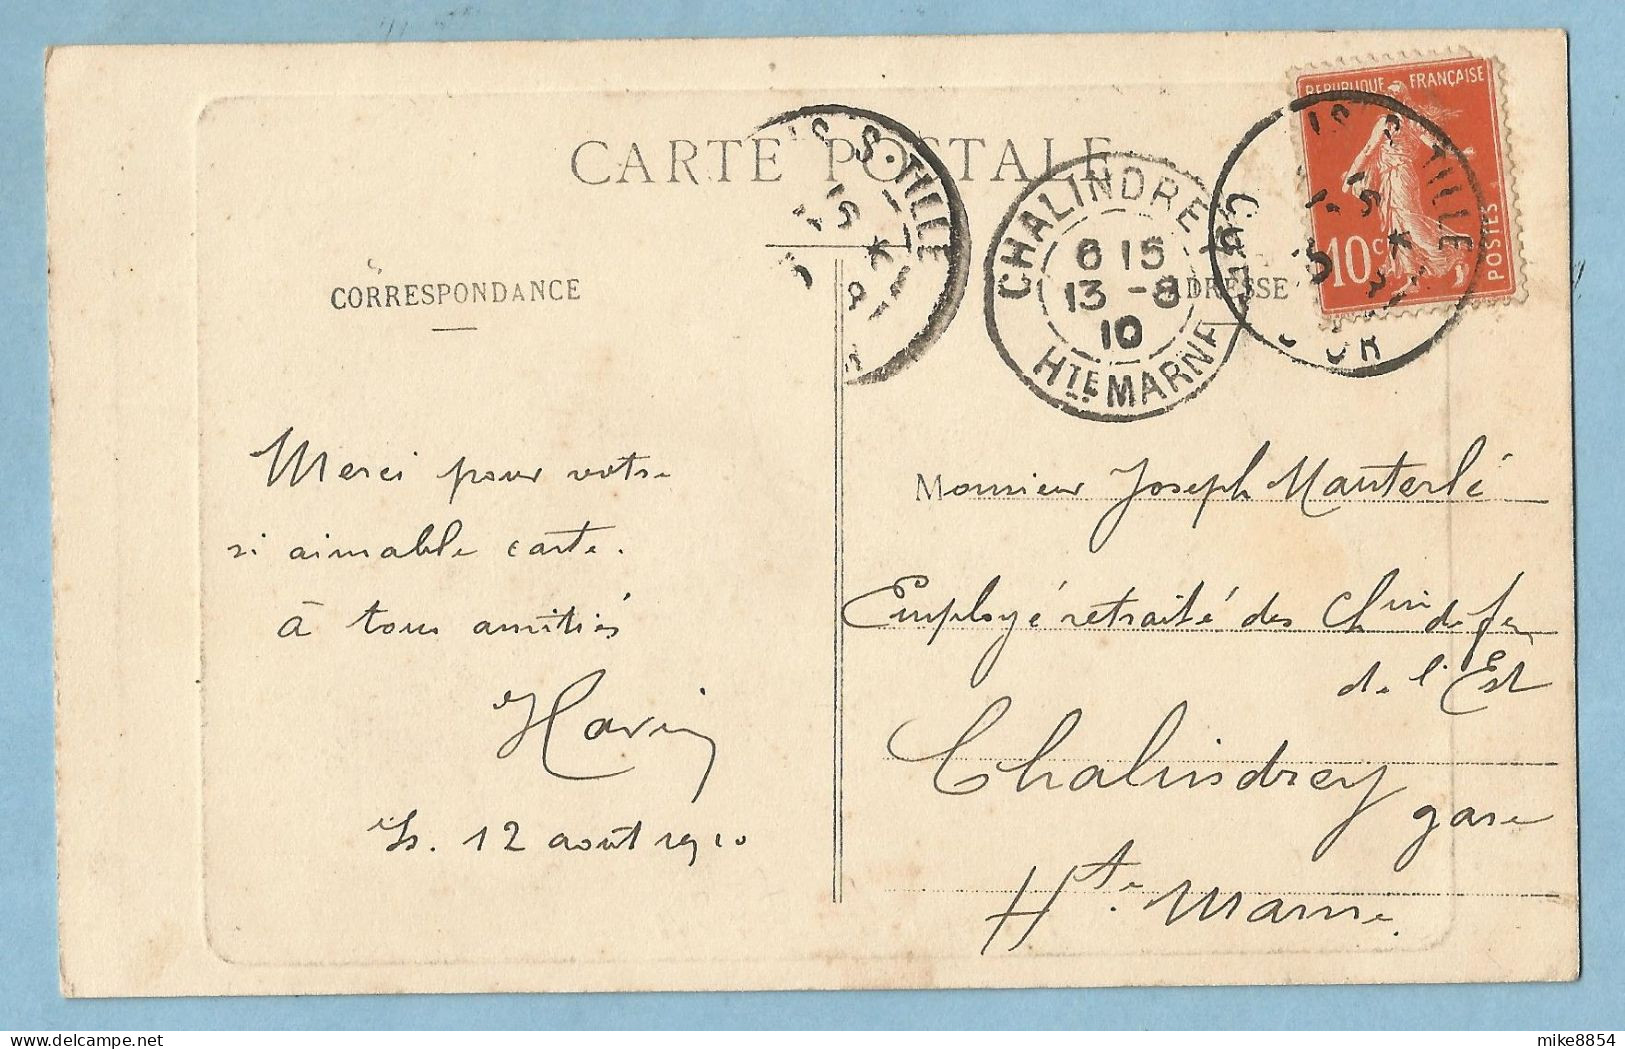 CARTE POSTALE
CORRESPONDANCE
ADRESSE
REPUBLIQUE FRANÇAISE
10 c
POSTES
S. TILLE
S. TILLE
CHALINDREY
6 15
13 -8
10
HTE MARNE
Merci pour votre
si aimable carte.
à tous amitiés
Is. 12 août 1910
Monsieur Joseph Mauterlé
Employé retraité des Chin de fer
de l'Est
Chalindrey
gare
Hte Marne.
mike8854